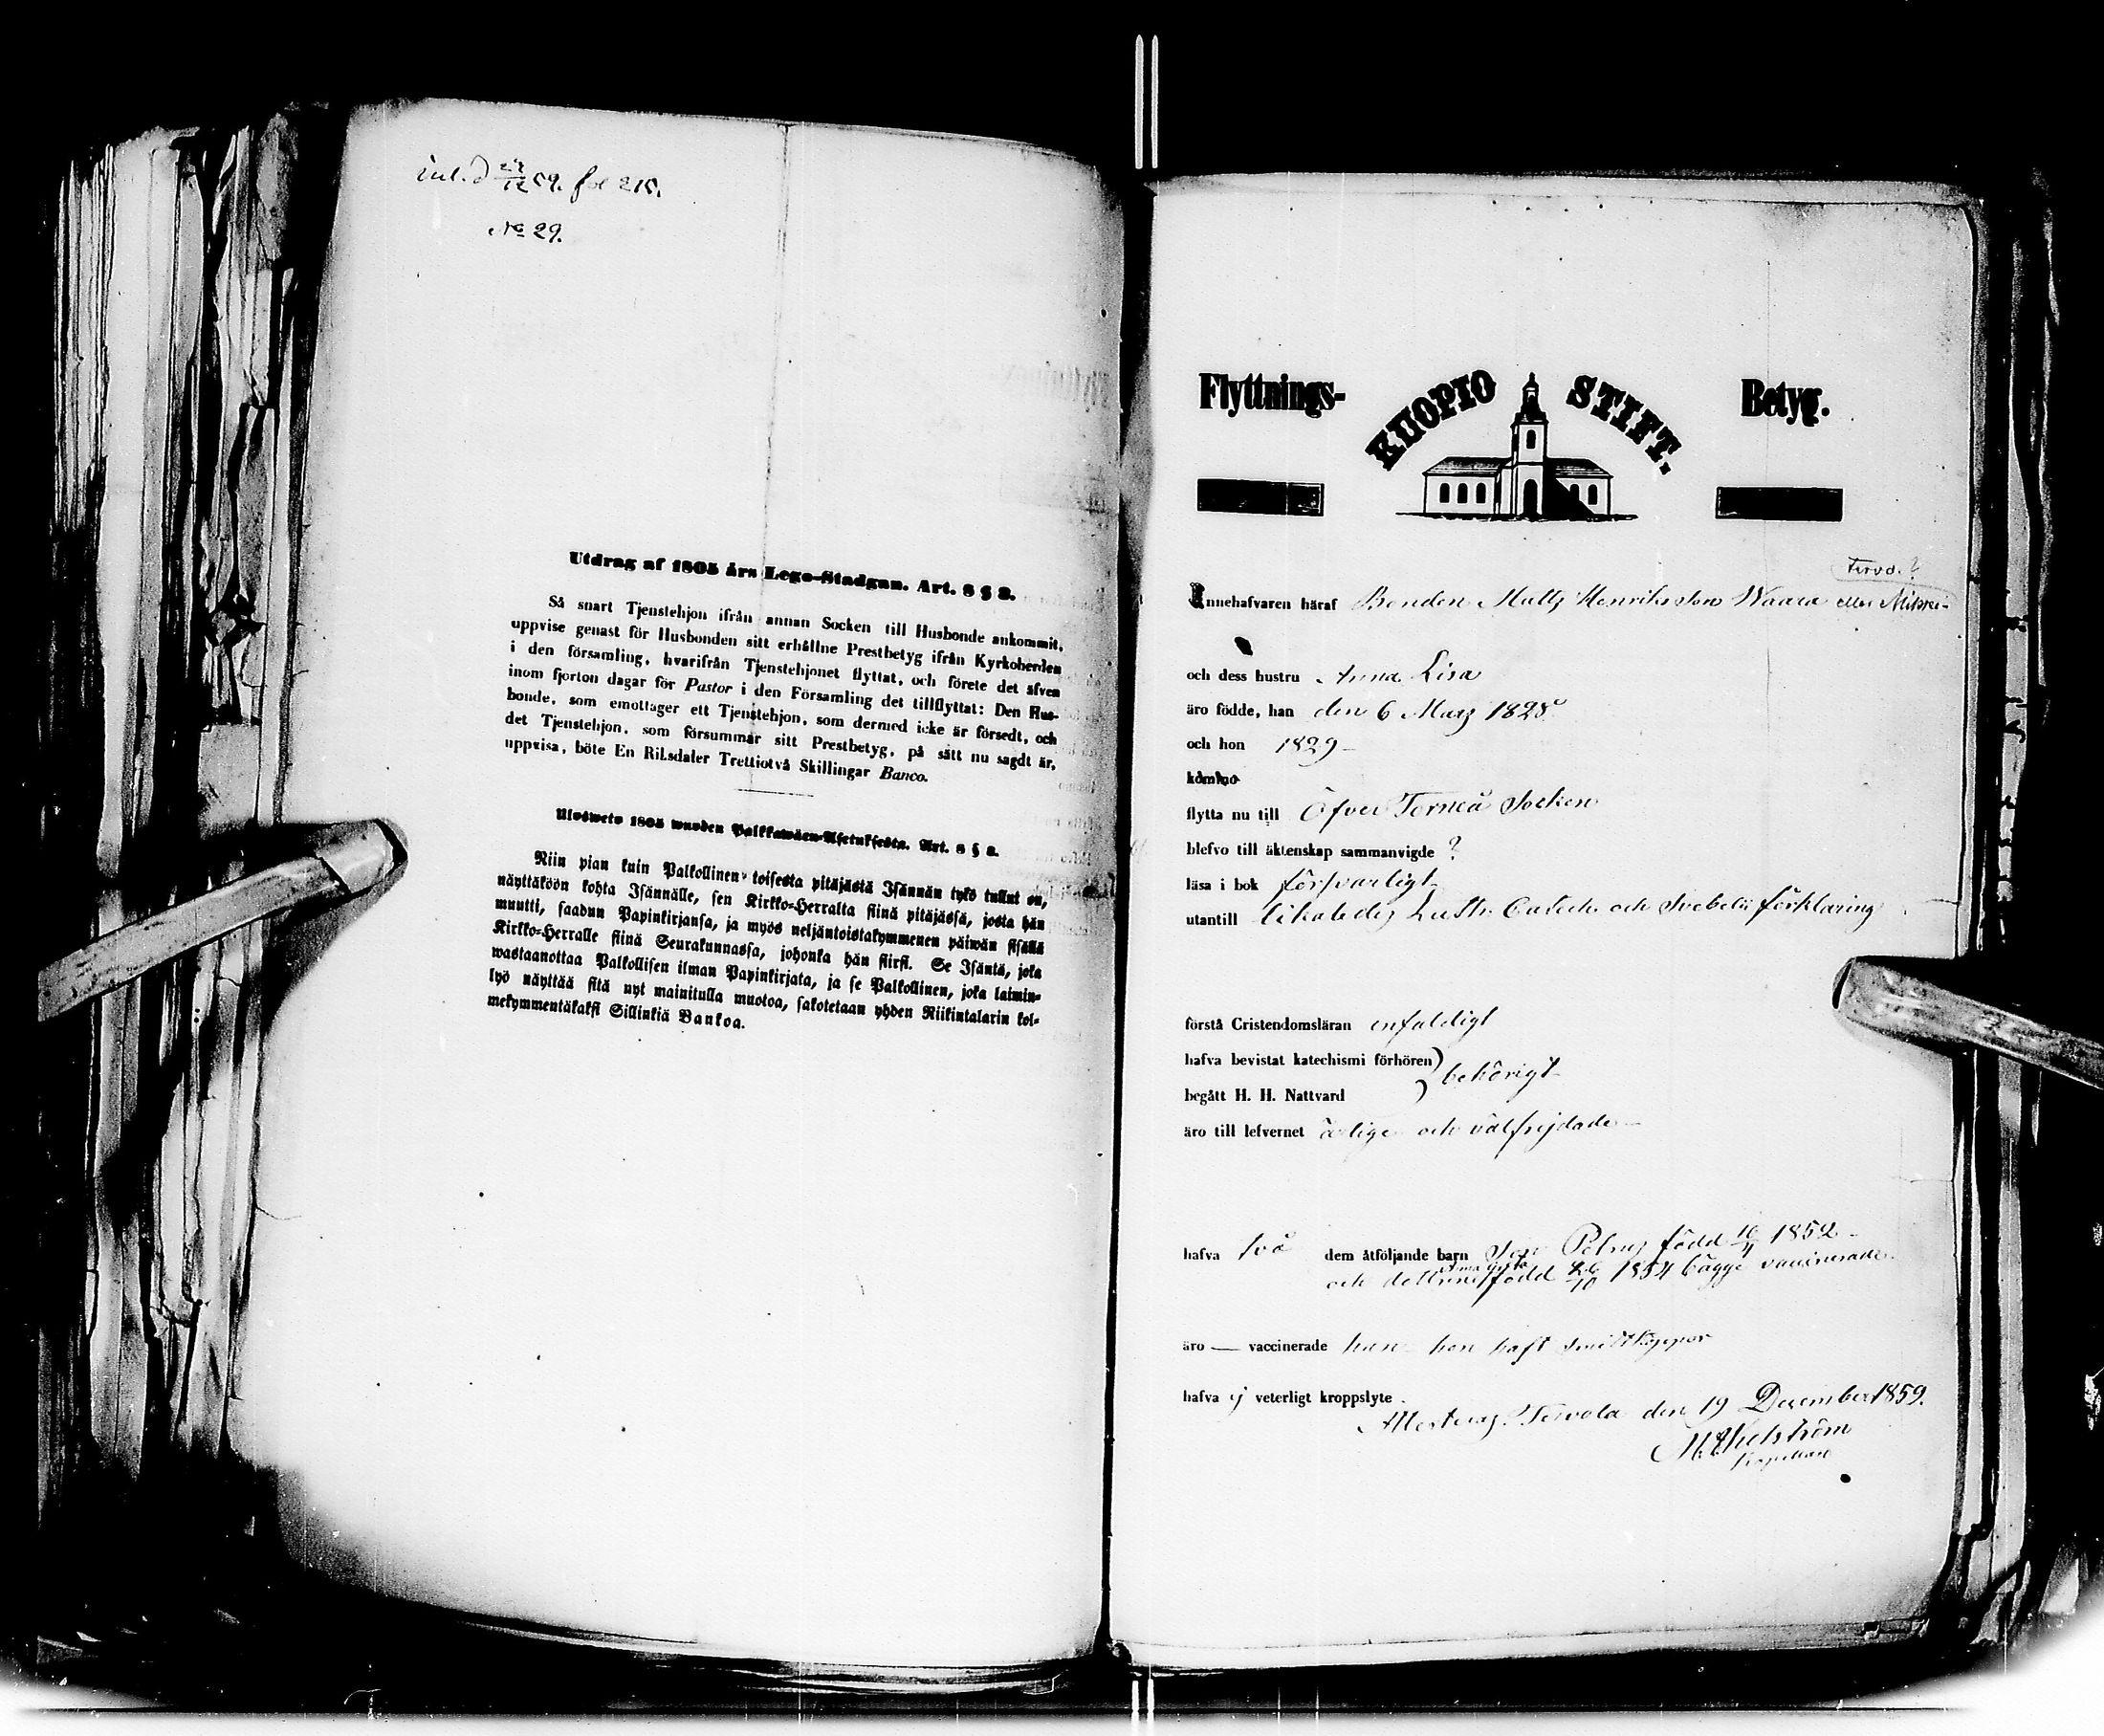 inl. d 27/12 59. fol 215.
No 29.
Utdrag af 1805 års Lego-Stadgan. Art. 8 § 8.
Så snart Tjenstehjon ifrån annan Socken till Husbonde ankommit,
uppvise genast för Husbonden sitt erhållne Prestbetyg ifrån Kyrkoherden
i den församling, hvarifrån Tjenstehjonet flyttat, och förete det äfven
inom fjorton dagar för Pastor i den Församling det tillflyttat: Den Hus-
bonde, som emottager ett Tjenstehjon, som dermed icke är försedt, och
det Tjenstehjon, som försummar sitt Prestbetyg, på sätt nu sagdt är,
uppvisa, böte En Riksdaler Trettiotvå Skillingar Banco.
Ulosweto 1805 wuoden Palkkawäen-Asetuksesta. Art. 8 § 8.
Niin pian kuin Palkollinen toisesta pitäjästä Isännän tykö tullut on,
näyttäköön kohta Isännälle, sen Kirkko-Herralta siinä pitäjässä, josta hän
muutti, saadun Papinkirjansa, ja myös neljäntoistakymmenen päiwän sisällä
Kirkko-Herralle siinä Seurakunnassa, johonka hän siirsi. Se Isäntä, joka
wastaanottaa Palkollisen ilman Papinkirjata, ja se Palkollinen, joka laimin-
lyö näyttää sitä nyt mainitulla muotoa, sakotetaan yhden Riikintalarin kol-
mekymmentäkaksi Sillinkiä Bankoa.
Flyttnings- KUOPIO STIFT. Betyg.
Tervo. ?
Innehafvaren häraf Bonden Matts Henriksson Waara eller Mikkei-
och dess hustru Anna Lisa
äro födde, han den 6 Mars 1828
och hon 1829
komno
flytta nu till Öfver Torneå Socken
blefvo till äktenskap sammanvigde ?
läsa i bok försvarligt
utantill likaledes Luth. Catech. och Svebelii förklaring
förstå Cristendomsläran enfaldigt
hafva bevistat katechismi förhören
behörigt
begått H. H. Nattvard
äro till lefvernet ärlige och välfrejdade
hafva två dem åtföljande barn Son Petrus född 16/4 1852
och dottren född 26/10 1854 bägge vaccinerade.
äro — vaccinerade han hon haft smittkoppor
hafva ej veterligt kroppslyte.
Attesteras. Tervola den 19 December 1859.
Kapellan